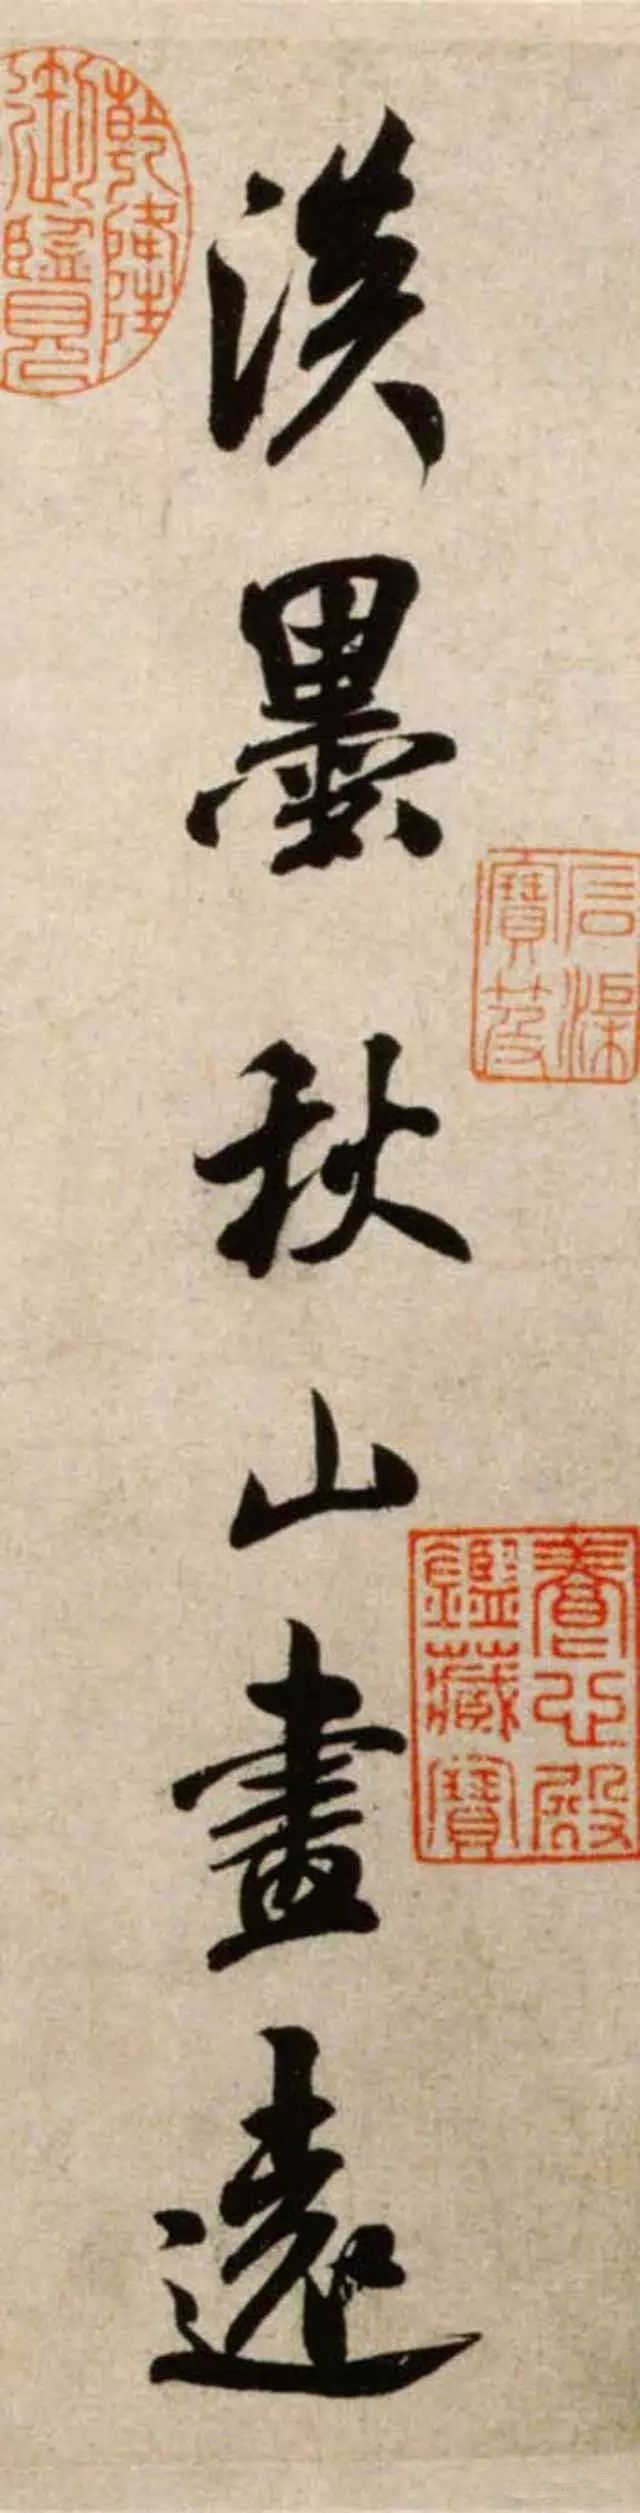 淡墨秋山畫遠
乾隆御覽之寶
石渠寶笈
養心殿鑑藏寶